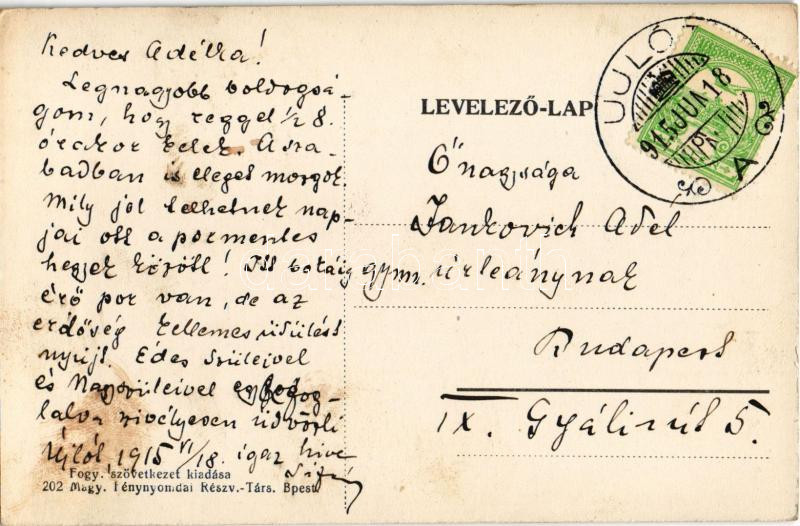 Kedves Adélka!
Legnagyobb boldogsá-
gom, hogy reggel 1/2 8.
órakor kelek. A sza-
badban is eleget mozgok.
Mily jól telhetnek nap-
jai ott a pormentes
hegyek között! Itt bokáig
érő por van, de az
erdőség kellemes üdülést
nyújt. Édes szüleivel
és Nagyszüleivel együtt fog-
lalva szívélyesen üdvözli
Újlót 1915 VI/18. igaz híve
Fogy. szövetkezet kiadása
202 Magy. Fénynyomdai Részv.-Társ. Bpest.
LEVELEZŐ-LAP
UJLÓT
915 JUN 18
A
Őnagysága
Jankovich Adél
gymn. úrleánynak
Budapest
IX. Gyáli út 5.
darabanth